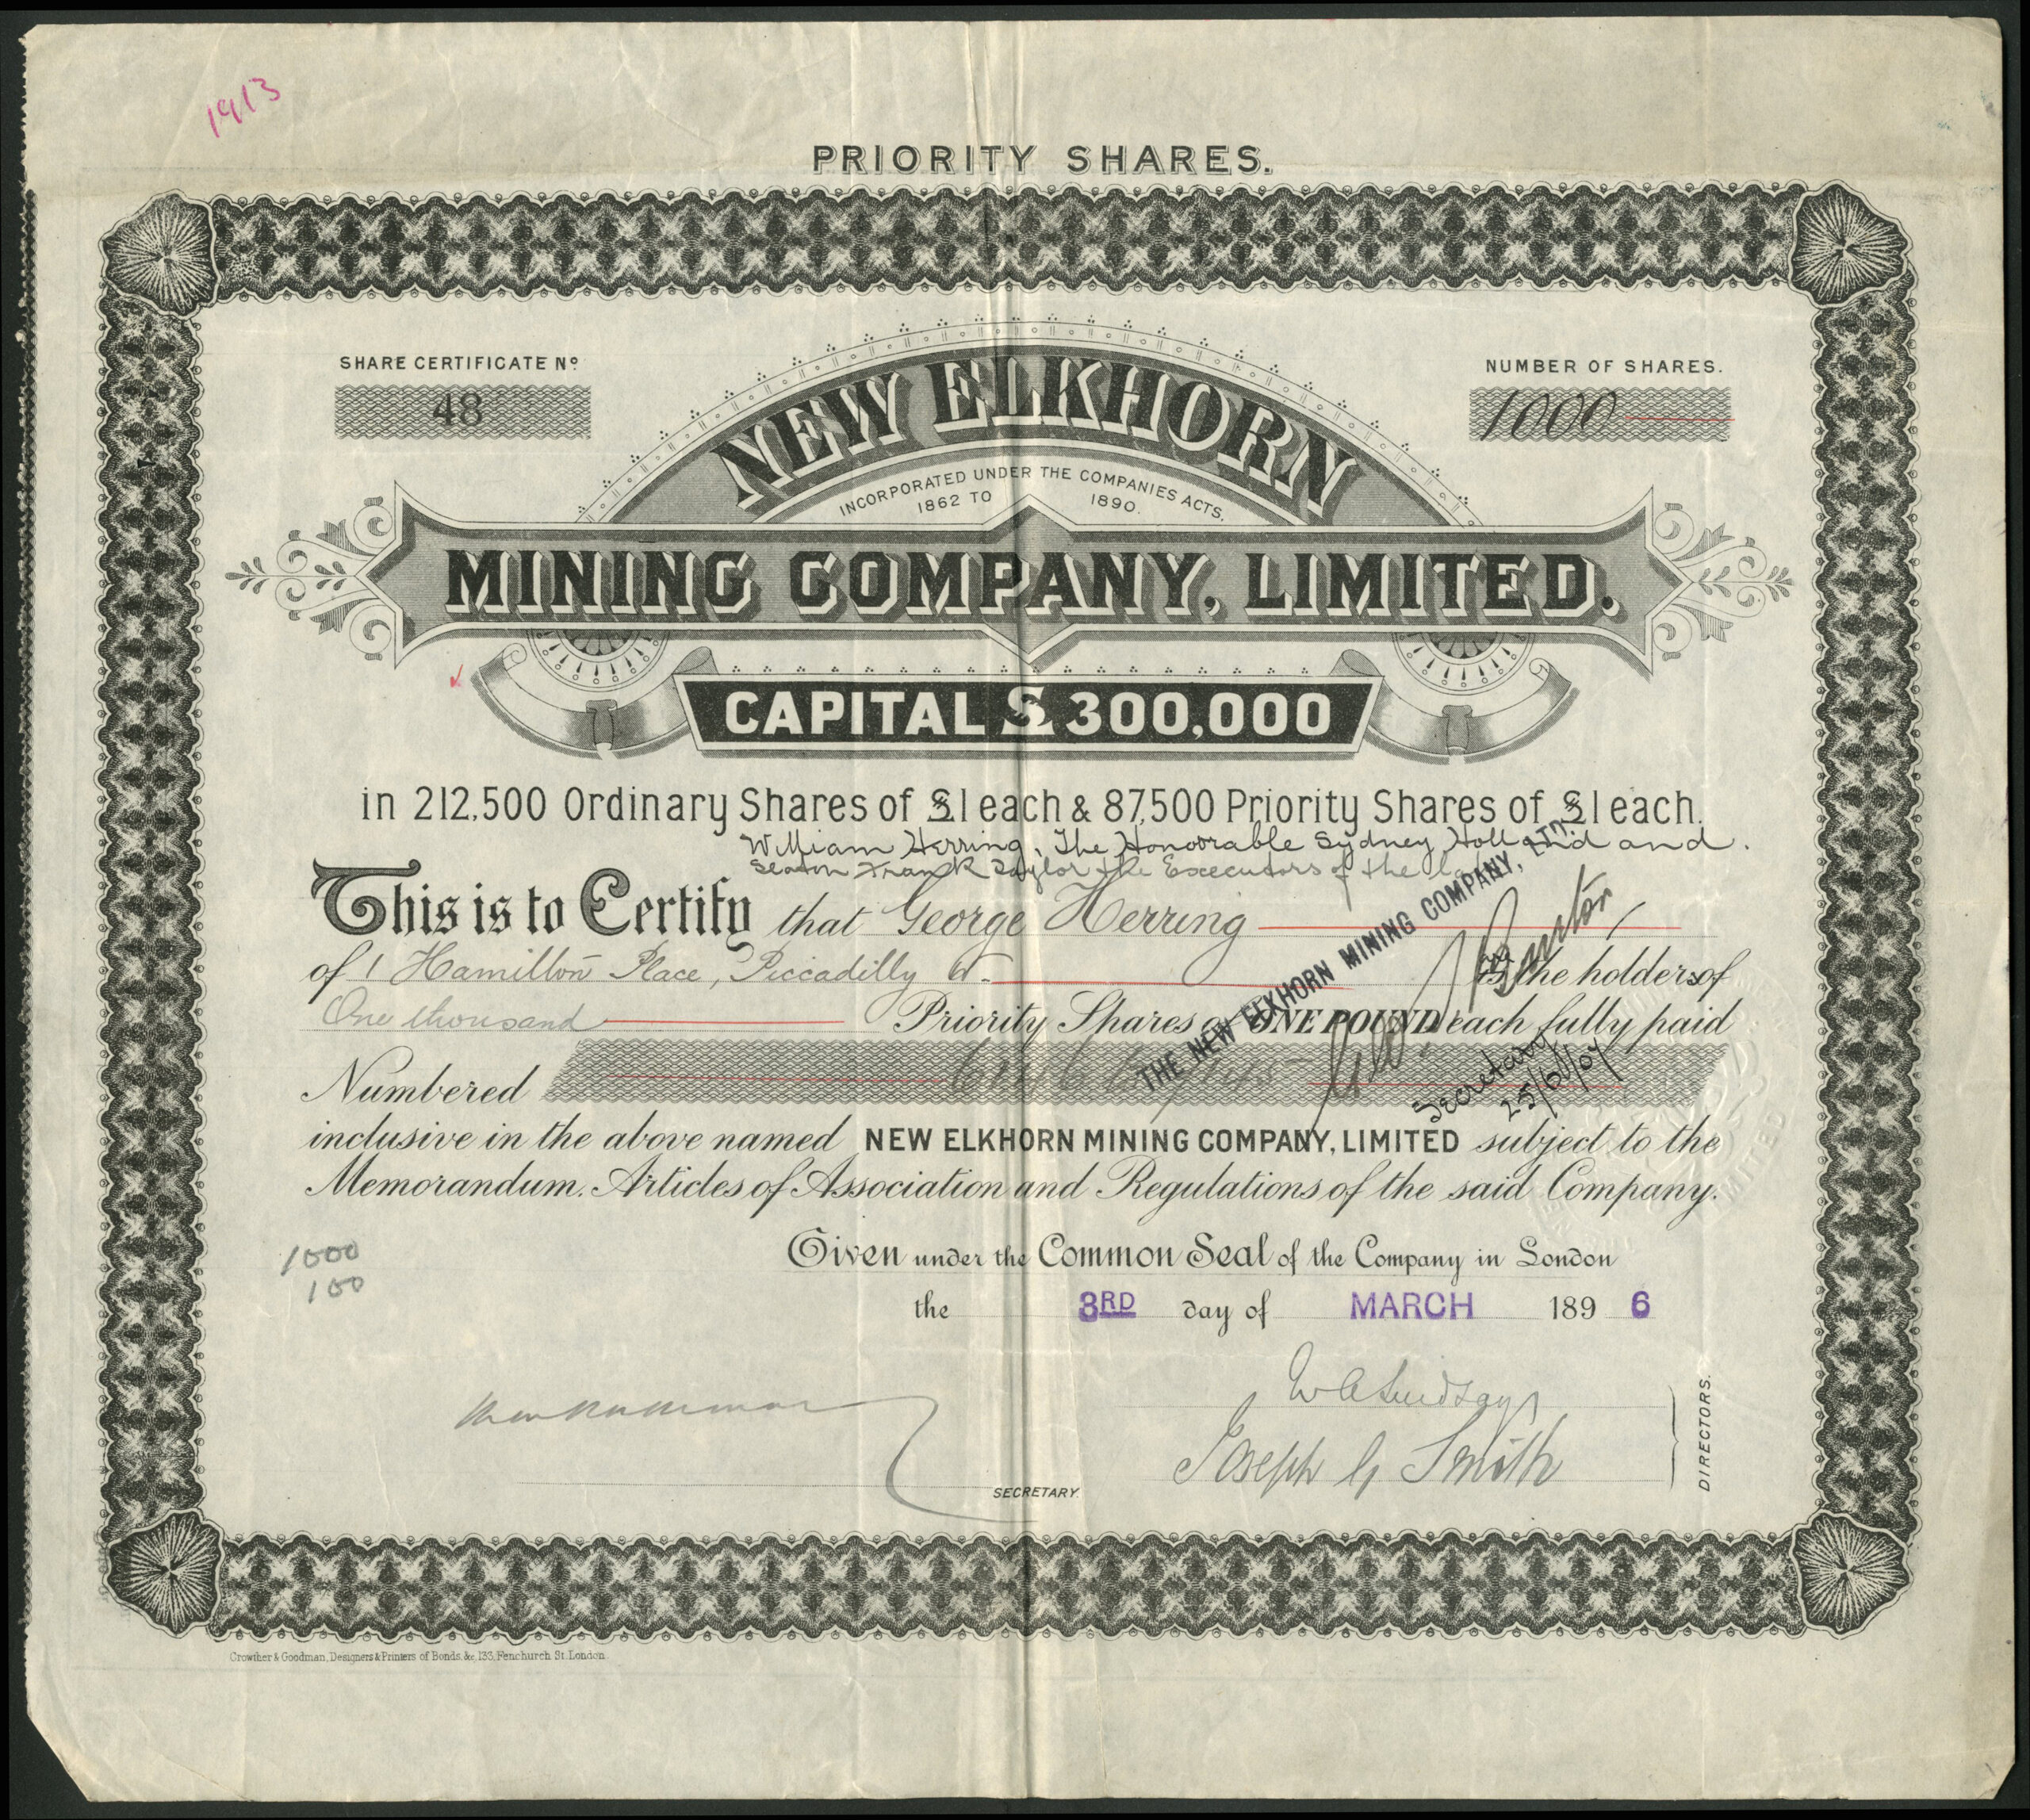 1913
PRIORITY SHARES.
SHARE CERTIFICATE Nº
48
NUMBER OF SHARES.
1000
NEW ELKHORN
INCORPORATED UNDER THE COMPANIES ACTS,
1862 TO 1890.
MINING COMPANY, LIMITED.
CAPITAL £300,000
in 212,500 Ordinary Shares of £1 each & 87,500 Priority Shares of £1 each.
William Herring, The Honourable Sydney Holland and
Seaton Frank Taylor the Executors of the
This is to Certify that George Herring
of 1 Hamilton Place, Piccadilly W. is the holders of
One thousand Priority Shares of ONE POUND each fully paid
THE NEW ELKHORN MINING COMPANY, LTD.
Secretary
25/6/07
Numbered
inclusive in the above named NEW ELKHORN MINING COMPANY, LIMITED subject to the
Memorandum. Articles of Association and Regulations of the said Company.
1000
100
Given under the Common Seal of the Company in London
the 3RD day of MARCH 1896
W A Lindsay
Joseph G Smith
SECRETARY.
DIRECTORS.
Crowther & Goodman, Designers & Printers of Bonds, &c, 133, Fenchurch St. London